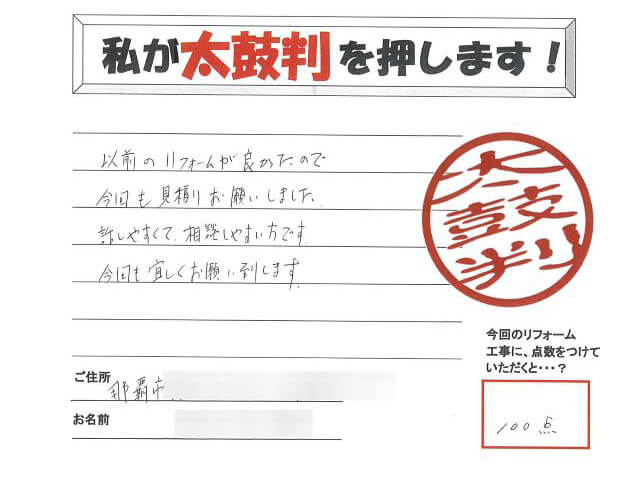 私が太鼓判を押します！
以前のリフォームが良かったので
今回も見積りお願いしました。
話しやすくて、相談しやすい方です。
今回も宜しくお願い致します。
太鼓判
今回のリフォーム
工事に、点数をつけて
いただくと・・・？
100点
ご住所 那覇市
お名前